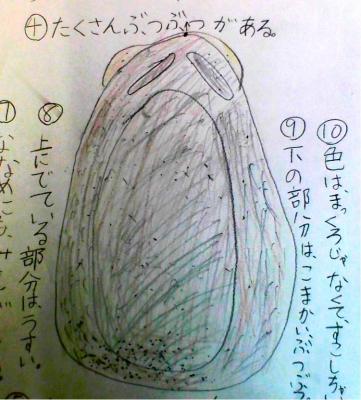 ④たくさんぶつぶつがある。
⑩色は、まっくろじゃなくて、すこしちゃ
⑨下の部分はこまかいぶつぶつ
⑧上にでている部分はうすい。
⑦ななめに